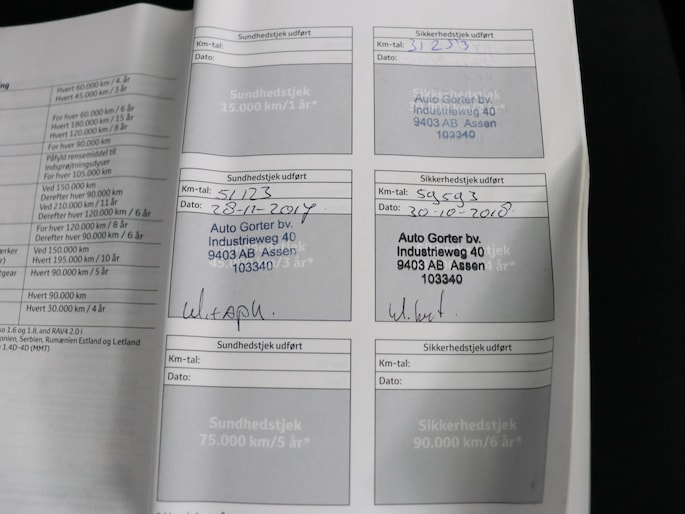 Hvert 60.000 km / 4 år
Hvert 45.000 km / 3 år
For hver 60.000 km / 6 år
Hvert 180.000 km / 15 år
Hvert 120.000 km / 8 år
For hver 90.000 km
Påfyld rensemiddel til
indsprøjtningsdyser
For hver 105.000 km
Ved 150.000 km
Derefter hver 90.000 km
Ved 210.000 km / 11 år
Derefter hver 120.000 km / 6 år
For hver 120.000 km / 8 år
Derefter hver 90.000 km / 6 år
Ved 150.000 km
Hvert 195.000 km / 10 år
Hvert 90.000 km / 5 år
Hvert 90.000 km
Hvert 30.000 km / 4 år
1.6 og 1.8, and RAV4 2.0 i
Serbien, Rumænien Estland og Letland
1.4D-4D (MMT)
Sundhedstjek udført
Km-tal:
Dato:
Sundhedstjek
15.000 km/1 år*
Sikkerhedstjek udført
Km-tal: 31253
Dato:
Auto Gorter bv.
Industrieweg 40
9403 AB Assen
103340
Sundhedstjek udført
Km-tal: 51123
Dato: 28-11-2017
Auto Gorter bv.
Industrieweg 40
9403 AB Assen
103340
Sikkerhedstjek udført
Km-tal: 59593
Dato: 30-10-2018
Auto Gorter bv.
Industrieweg 40
9403 AB Assen
103340
Sundhedstjek udført
Km-tal:
Dato:
Sundhedstjek
75.000 km/5 år*
Sikkerhedstjek udført
Km-tal:
Dato:
Sikkerhedstjek
90,000 km/6 år*